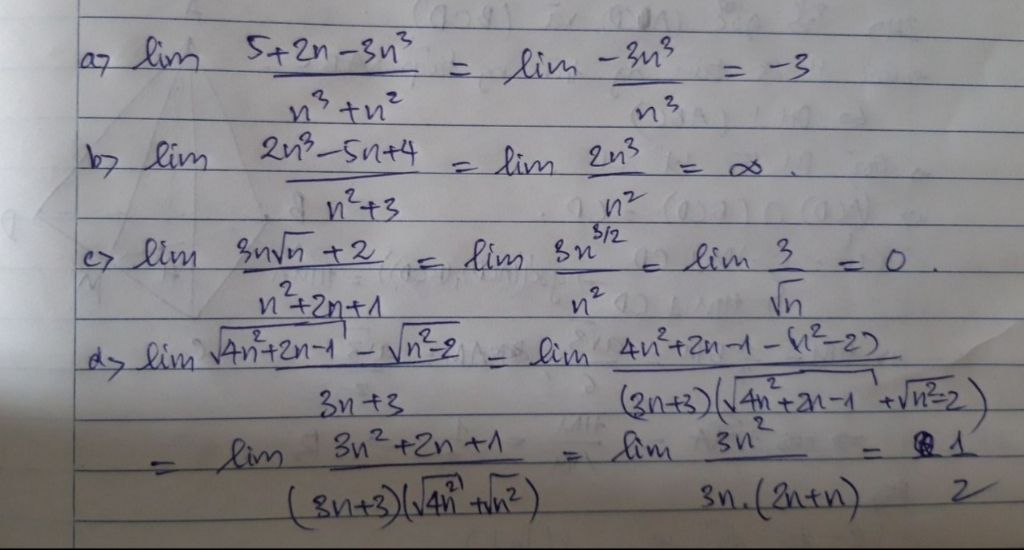 a) lim (5+2n-3n³)/(n³+n²) = lim (-3n³)/(n³) = -3
b) lim (2n³-5n+4)/(n²+3) = lim (2n³)/(n²) = ∞.
c) lim (3n√n+2)/(n²+2n+1) = lim (3n^(3/2))/(n²) = lim 3/√n = 0.
d) lim (√(4n²+2n-1) - √(n²-2))/(3n+3) = lim (4n²+2n-1-(n²-2))/((3n+3)(√(4n²+2n-1)+√(n²-2)))
= lim (3n²+2n+1)/((3n+3)(√(4n²)+√(n²))) = lim (3n²)/(3n.(2n+n)) = 1/2